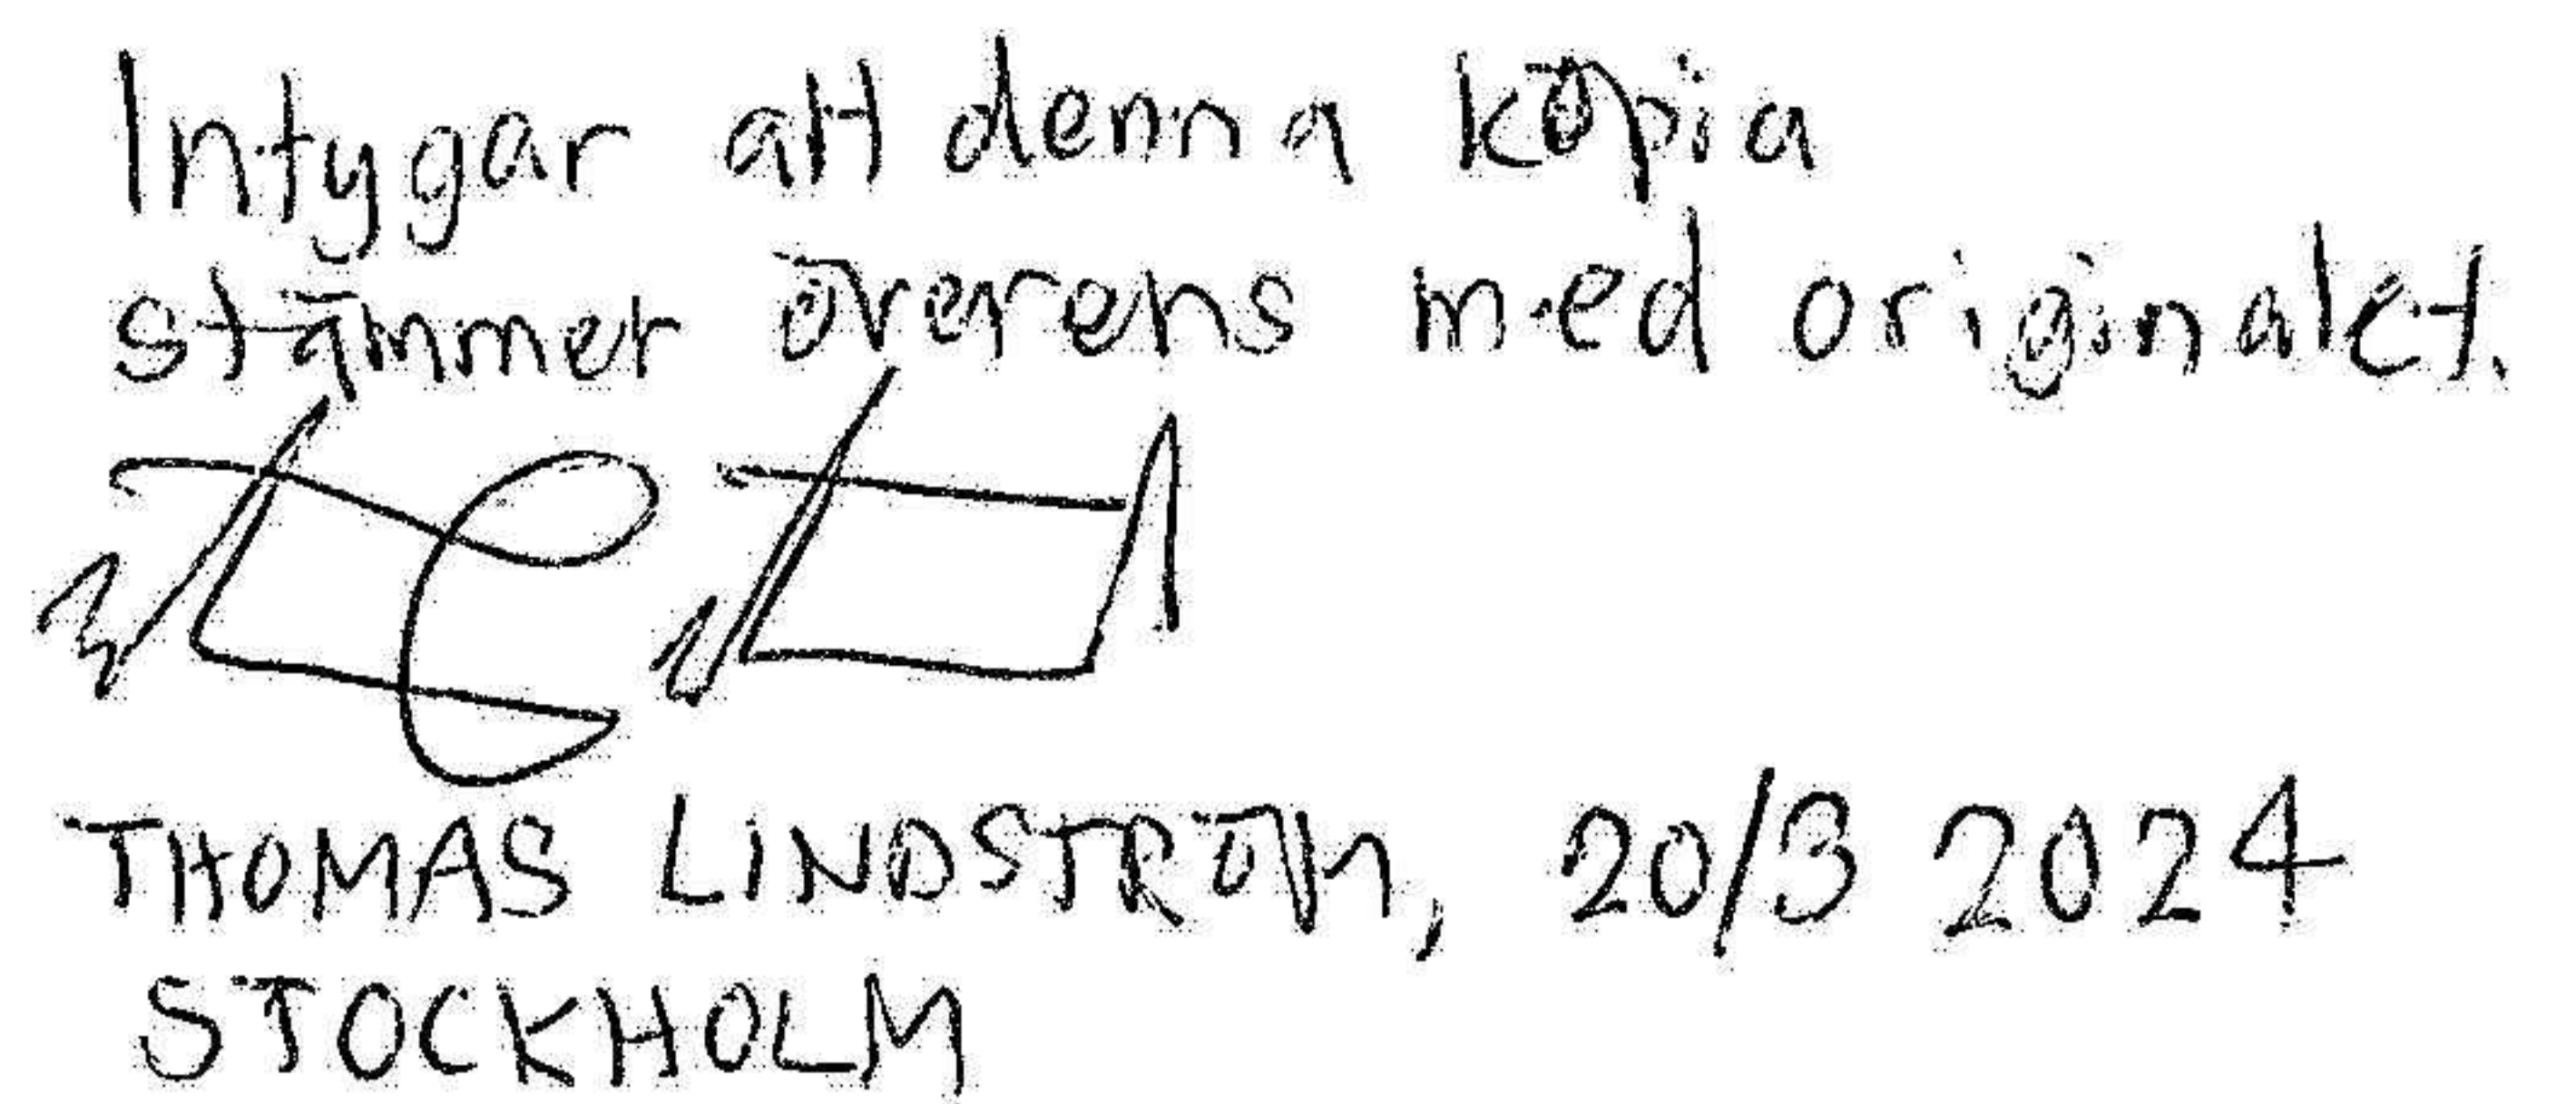 Intygar att denna kopia
stämmer överens med originalet.
THOMAS LINDSTRÖM, 20/3 2024
STOCKHOLM